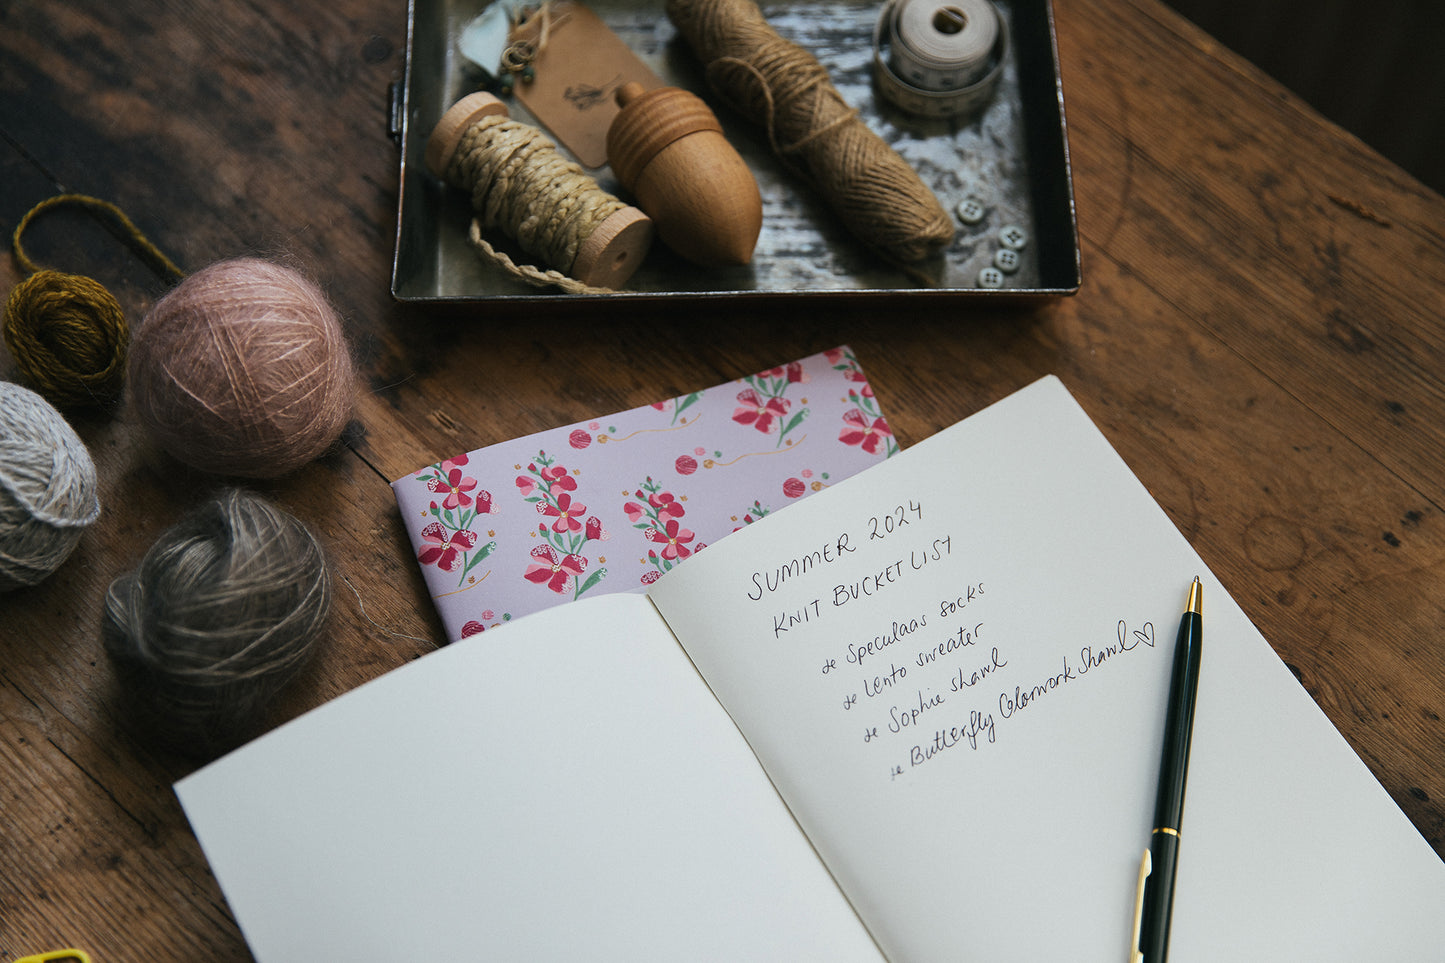 SUMMER 2024
KNIT BUCKET LIST
Speculaas socks
Lento sweater
Sophie shawl
Butterfly Colorwork Shawl ♡